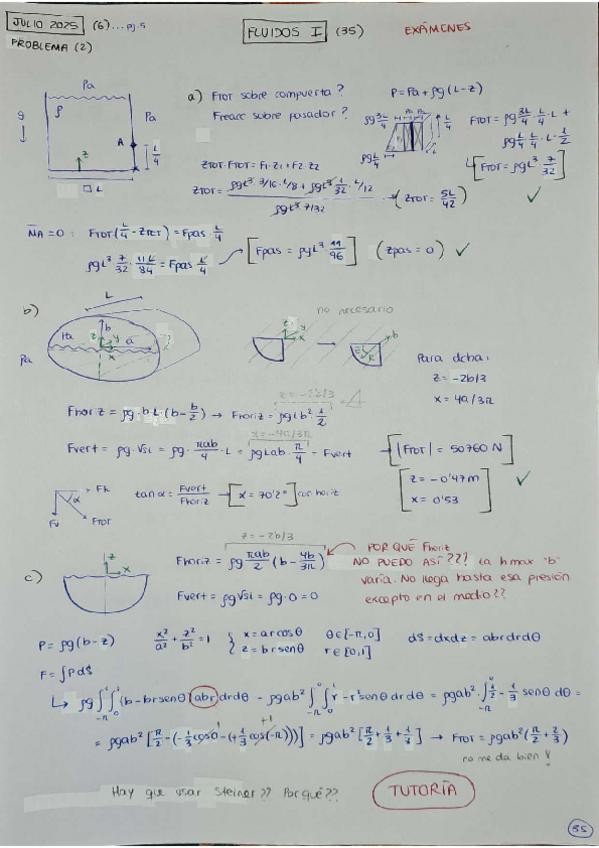 JULIO 2025 (6)...pg.5
FLUIDOS I (35)
EXÁMENES
PROBLEMA (2)
Pa
ρ
Pa
g
A
z
L/4
□ L
a) Ftot sobre compuerta?
Freacc sobre pasador?
P=Pa+ρg(L-z)
ρg 3L/4
ρg L/4
L/4
Ftot = ρg 3L/4 · L/4 · L +
ρg L/4 · L/4 · L · 1/2
[Ftot = ρgL³ 7/32] ✓
Ztot·Ftot = F1·Z1 + F2·Z2
Ztot = (ρgL³·3/16·L/8 + ρgL³ 1/32·L/12) / (ρgL³ 7/32) → (Ztot = 5L/42)
MA=0: Ftot(L/4 - Ztot) = Fpas L/4
ρgL³ 7/32 · 11L/84 = Fpas L/4 → [Fpas = ρgL³ 11/96] (Zpas = 0) ✓
b)
L
Ha
b
z
y
a
x
Pa
no necesario
z
y
x
b
Para dcha:
z = -2b/3
x = 4a/3π
z = -2b/3
Fhoriz = ρg·b·L·(b-b/2) → Fhoriz = ρgLb² 1/2
x = -4a/3π
Fvert = ρg·Vsl = ρg·πab/4·L = ρgLab·π/4 = Fvert
→ [|Ftot| = 50760 N]
Fh
α
Fv
Ftot
tanα = Fvert/Fhoriz → [α = 70'2°] con horiz
[z = -0'47m
x = 0'53] ✓
z = -2b/3
c)
z
x
Fhoriz = ρg πab/2 (b - 4b/3π)
POR QUÉ Fhoriz
NO PUEDO ASÍ??? La hmax "b"
varía. No llega hasta esa presión
excepto en el medio??
Fvert = ρgVsl = ρg·0 = 0
P = ρg(b-z)
x²/a² + z²/b² = 1
{ x = arcosθ θ∈[-π,0]
z = brsenθ r∈[0,1]
dS = dxdz = abrdrdθ
F = ∫PdS
↳ ρg∫∫(b-brsenθ)abrdrdθ = ρgab²∫∫r-r²senθdrdθ = ρgab²·∫1/2-1/3 senθdθ =
= ρgab²[π/2-(-1/3cos0-(+1/3cos(-π)))] = ρgab²[π/2+1/3+1/3] → Ftot = ρgab²(π/2+2/3)
no me da bien!
Hay que usar Steiner?? Por qué??
TUTORÍA
35